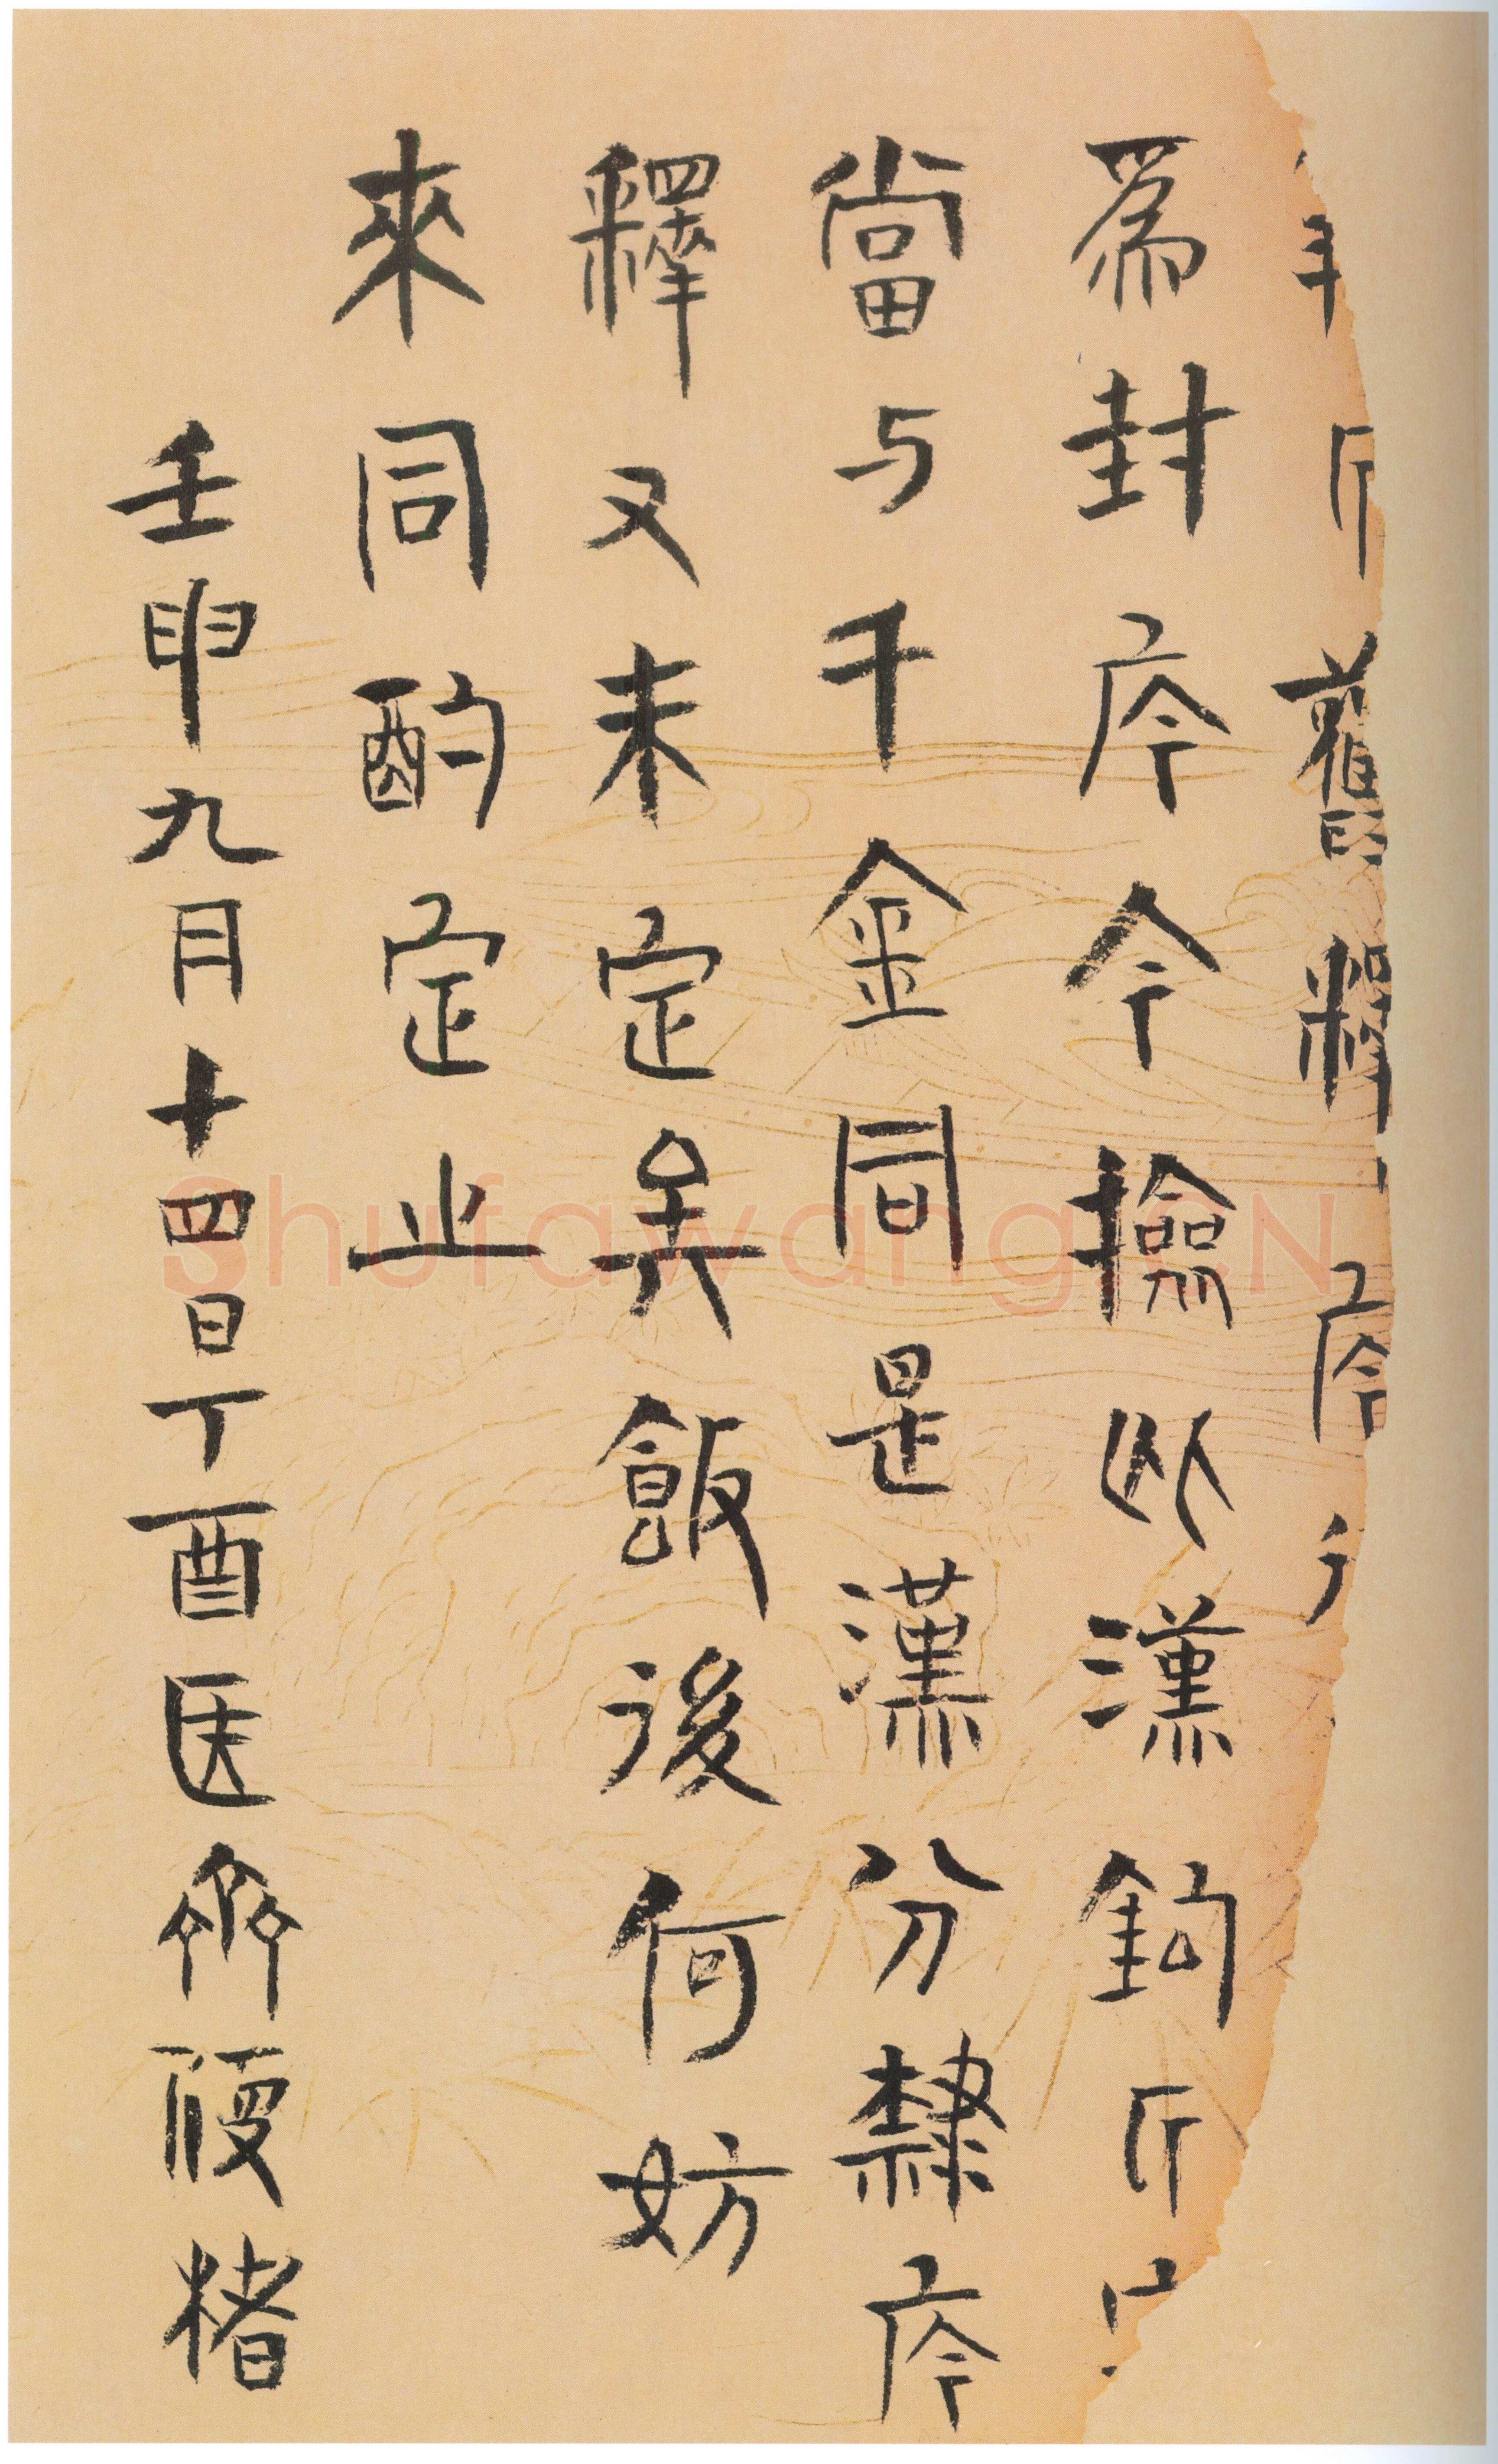 斤舊釋庈
為封庈今撿以漢鈎斤
當与千金同是漢分隸庈
釋又未定矣飯後何妨
來同酌定之
壬申九月十四日丁酉医齊楮
Shufawang.CN